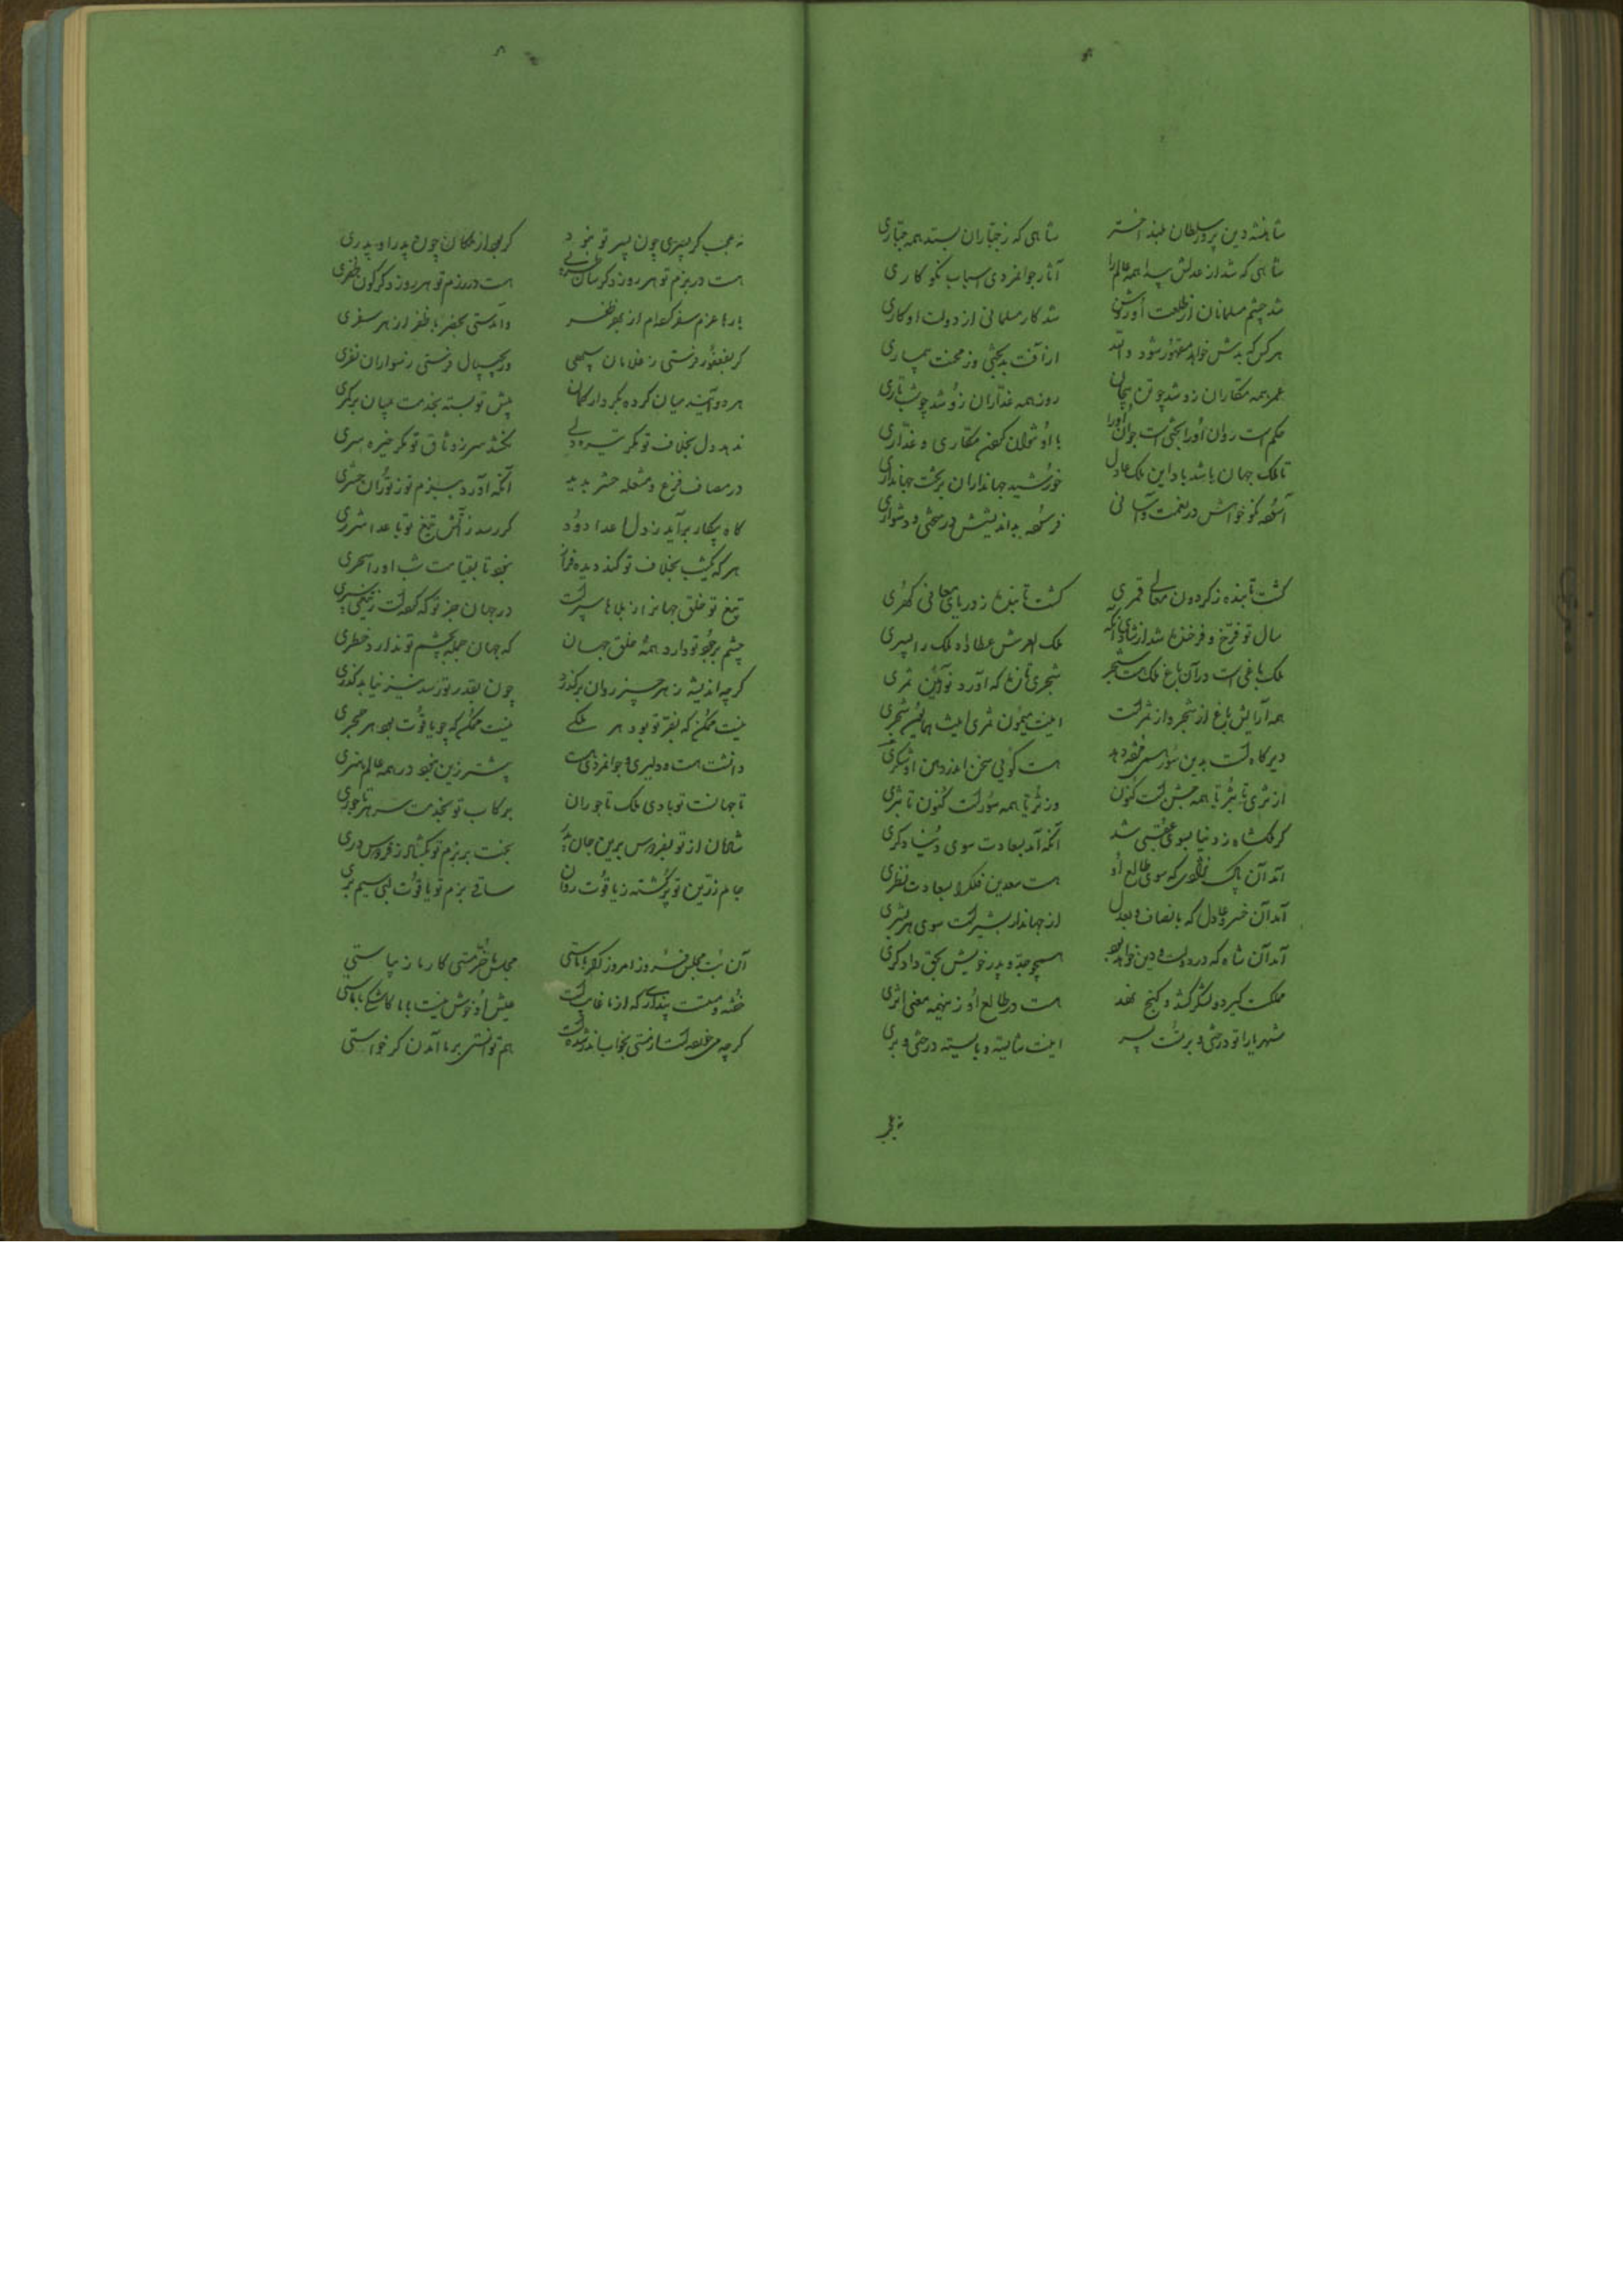 شاهنشه دین پرور سلطان بلند اختر
شاهی که ز جباران بستد همه جباری
شاهی که شد از عدلش پیدا همه عالم را
آثار جوانمردی اسباب نکوکاری
شد چشم مسلمانان از طلعت او روشن
شد کار مسلمانی از دولت او کاری
هر کس که بدش خواهد مقهور شود
از آفت بدبختی وز محنت بیماری
عمر همه مکاران زو شد چو تن پیچان
روز همه غداران زو شد چو شب تاری
حکم است روان او را بختی است جوان او را
با او نتوان کردن مکاری و غداری
تا ملک جهان باشد باد این ملک عادل
خورشید جهانداران بر تخت جهانداری
آسوده نکو خواهش در نعمت و آسانی
فرسوده بداندیشش در سختی و دشواری
گشت تابنده ز گردون معالی قمری
گشت تابنده ز دریای معانی گهری
سال تو فرخ و فرخنده شد از شادی آنکه
ملک العرش عطا داد ملک را پسری
ملک باغی است در آن باغ ملک هست شجر
شجری تازه که آورد نوآئین ثمری
همه آرایش باغ از شجر و از ثمر است
اینت میمون ثمری اینت همایون شجری
دیرگاه است بدین سور همی مژده دهد
هست گوئی سخن اندر دهن او شکری
از ثری تا بثریا همه جشن است کنون
وز ثریا همه سور است کنون تا بثری
گر ملکشاه ز دنیا سوی عقبی شد
آنکه آمد بسعادت سوی دنیا دگری
آمد آن پاک که سوی طالع او
هست سعدین فلک را بسعادت نظری
آمد آن خسرو عادل که بانصاف و بعدل
از جهاندار بشیر است سوی هر بشری
آمد آن شاه که در دولت و دین خواهد بود
همچو جد و پدر خویش بحق دادگری
مملکت گیرد و لشکر کشد و گنج نهد
هست در طالع او زینهمه معنی اثری
شهریارا تو درختی و برتست پسر
اینت شایسته و بایسته درختی و بری
نه عجب گر پسری چون پسر تو نبود
گر نبود از ملکان چون پدر او پدری
هست در بزم تو هر روز دگرسان
هست در رزم تو هر روز دگرگون ظفری
بارها عزم سفر کرده‌ام از بهر ظفر
و آمدستی بحضر با ظفر از هر سفری
گر بفغفور فرستی ز غلامان سپهی
ور بچیپال فرستی ز سواران نفری
هر دو آیند میان کرده بکردار کمان
پیش تو بسته بخدمت بمیان بر کمری
ندهد دل بخلاف تو مگر تیره دلی
نکشد سر ز وثاق تو مگر خیره سری
در مصاف فزع و مشعله حشر بدید
آنکه آورد برزم تو ز توران حشری
گاه پیکار برآید ز دل اعدا دود
گر رسد ز آتش تیغ تو باعدا شرری
هر که یکشب بخلاف تو کند دیده فراز
نبود تا بقیامت شب او را سحری
تیغ تو خلق جهان را ز بلاها سپر است
در جهان جز تو که کرده است ز تیغی سپری
چشم بر جود تو دارد همه خلق جهان
که جهان جمله بچشم تو ندارد خطری
گرچه اندیشه ز هر چیز روان برگذرد
چون بقدر تو رسد نیز نیابد گذری
نیست ممکن که بفر تو بود هر ملکی
نیست ممکن که چو یاقوت بود هر حجری
دانشت هست و دلیری و جوانمردی هست
بیشتر زین نبود در همه عالم هنری
تا جهانست تو بادی ملک تاجوران
برکاب تو بخدمت سر هر تاجوری
شادمان از تو بفردوس برین جان پدر
بخت بر بزم تو بگشاده ز فردوس دری
جام زرین تو پر گشته ز یاقوت روان
ساقی بزم تو یاقوت لبی سیم بری
آن بت مجلس فروز امروز گر با ماستی
مجلس ما خرمستی کار ما زیباستی
خفته و مست پنداری که از ما غایب است
عیش او خوش نیست بی ما کاشکی با ماستی
گرچه می خورده است از مستی بخواب اندر شده است
هم توانستی بر ما آمدن گر خواستی